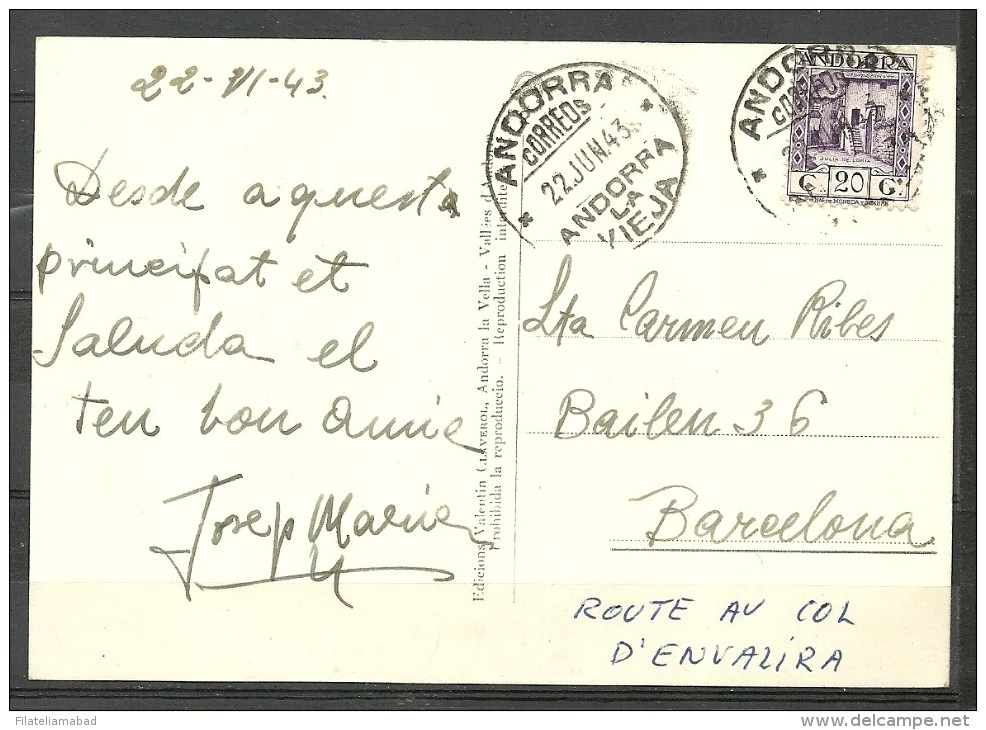 22-VI-43.
Desde aquesta
principat et
Saluda el
teu bon amic
Josep Maria
Edicions Valentin CLAVEROL, Andorra la Vella - Vallées d'And
Prohibida la reproduccio. - Reproduction interdite
ANDORRA
CORREOS
22.JUN.43
ANDORRA
LA
VIEJA
ANDORRA
CORREOS
ANDORRA
JULIA DE LORIA
C. 20 C.
Sta Carmen Ribes
Bailen 36
Barcelona
ROUTE AU COL
D'ENVALIRA
Filateliamabad
http://www.delcampe.net